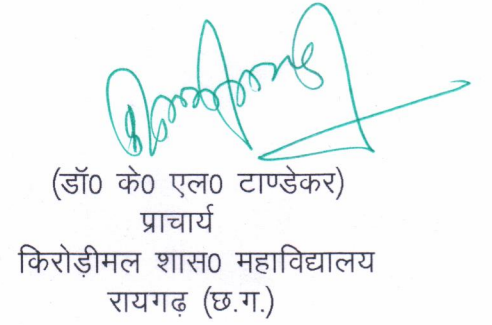 (डॉ0 के0 एल0 टाण्डेकर)
प्राचार्य
किरोड़ीमल शास0 महाविद्यालय
रायगढ़ (छ.ग.)